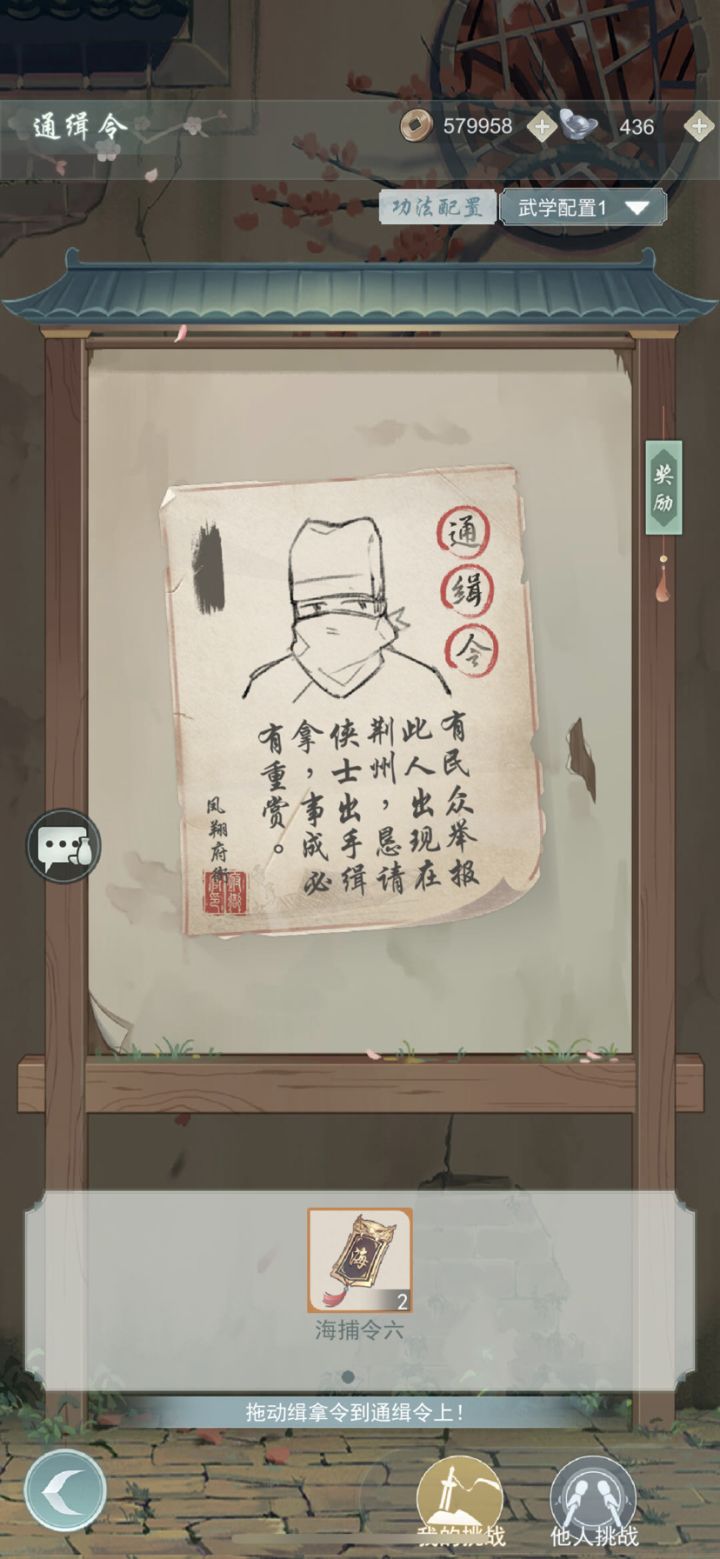 通缉令
579958
436
功法配置
武学配置1
奖励
通缉令
有民众举报
此人出现在
荆州，恳请
侠士出手缉
拿，事成必
有重赏。
凤翔府衙
海
2
海捕令六
拖动缉拿令到通缉令上！
我的挑战
他人挑战